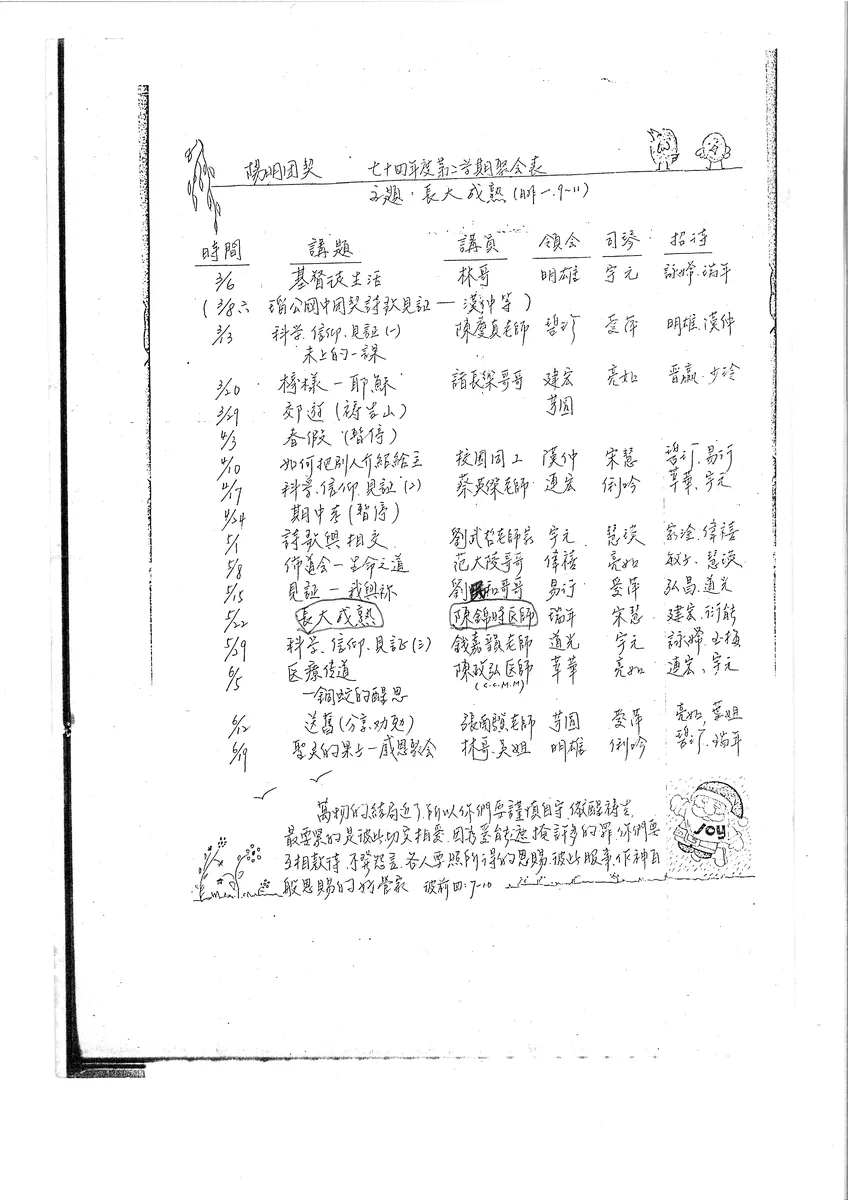 陽明团契 七十四年度第二学期聚会表
主題:長大成熟(西一.9~11)
時間 講題 講員 領会 司琴 招待
3/6 基督徒生活 林哥 明雄 宇元 詠嫦.瑞年
(3/8六 瑠公國中团契詩歌見証 — 漢仲等)
3/13 科学.信仰.見証(一) 陳慶真老師 碧珍 愛萍 明雄.漢仲
未上的一課
3/20 榜樣—耶穌 諸長樂哥哥 建宏 亮如 晋贏.步玲
3/29 郊遊(禱告山) 芎圓
4/3 春假(暫停)
4/10 如何把別人介紹給主 校园同工 漢仲 宋慧 碧行.易行
4/17 科学.信仰.見証(2) 蔡英傑老師 連宏 俐吟 菶華.宇元
4/24 期中考(暫停)
5/1 詩歌與相交 劉武哲老師家 宇元 慧漢 宗淦.偉禧
5/8 佈道会—生命之道 范大陵哥哥 偉禧 亮如 敏子.慧漢
5/15 見証—我與祢 劉民和哥哥 易行 愛萍 弘昌.道光
5/22 長大成熟 陳錦時医師 瑞年 宋慧 建宏.衍能
5/29 科学.信仰.見証(三) 錢嘉韻老師 道光 宇元 詠嫦.玉梅
6/5 医療传道 陳政弘医師 菶華 亮如 連宏.宇元
—銅蛇的醒思 (C.C.M.M)
6/12 送舊(分享.劝勉) 張南驥老師 芎圓 愛萍 亮如.葉姐
6/19 聖灵的果子—感恩聚会 林哥.吳姐 明雄 俐吟 碧行.瑞年
萬物的結局近了.所以你們要謹慎自守.儆醒禱告.
最要緊的是彼此切实相愛.因為愛能遮掩許多的罪.你們要
互相款待.不發怨言.各人要照所得的恩賜.彼此服事.作神百
般恩賜的好管家 彼前四:7-10
JOY